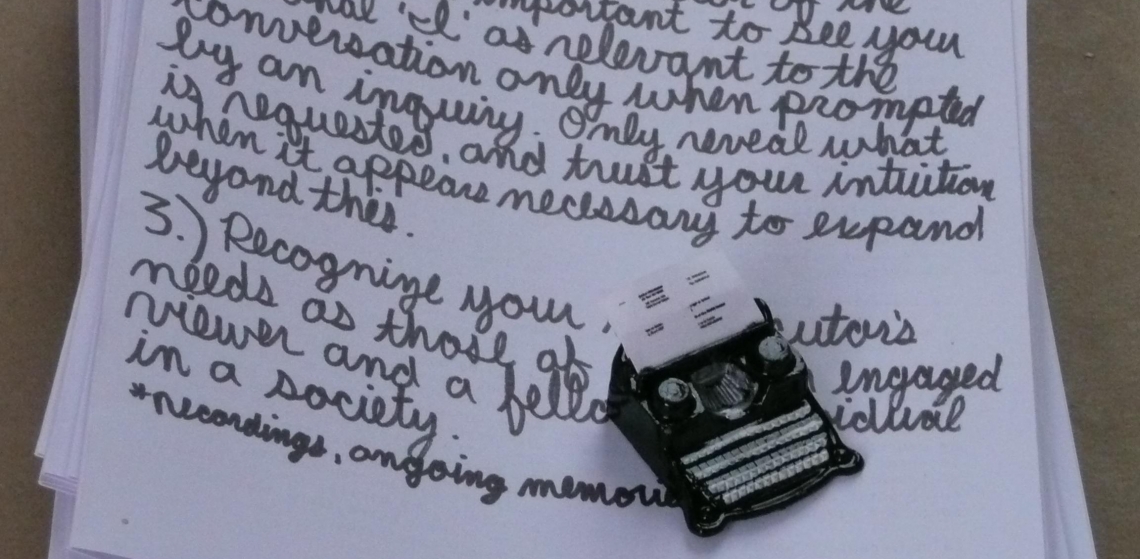 the
important to see your
'I' as relevant to the
conversation only when prompted
by an inquiry. Only reveal what
is requested, and trust your intuition
when it appears necessary to expand
beyond this.
3.) Recognize your
needs as those of engaged
viewer and a
in a society.
*recordings, ongoing